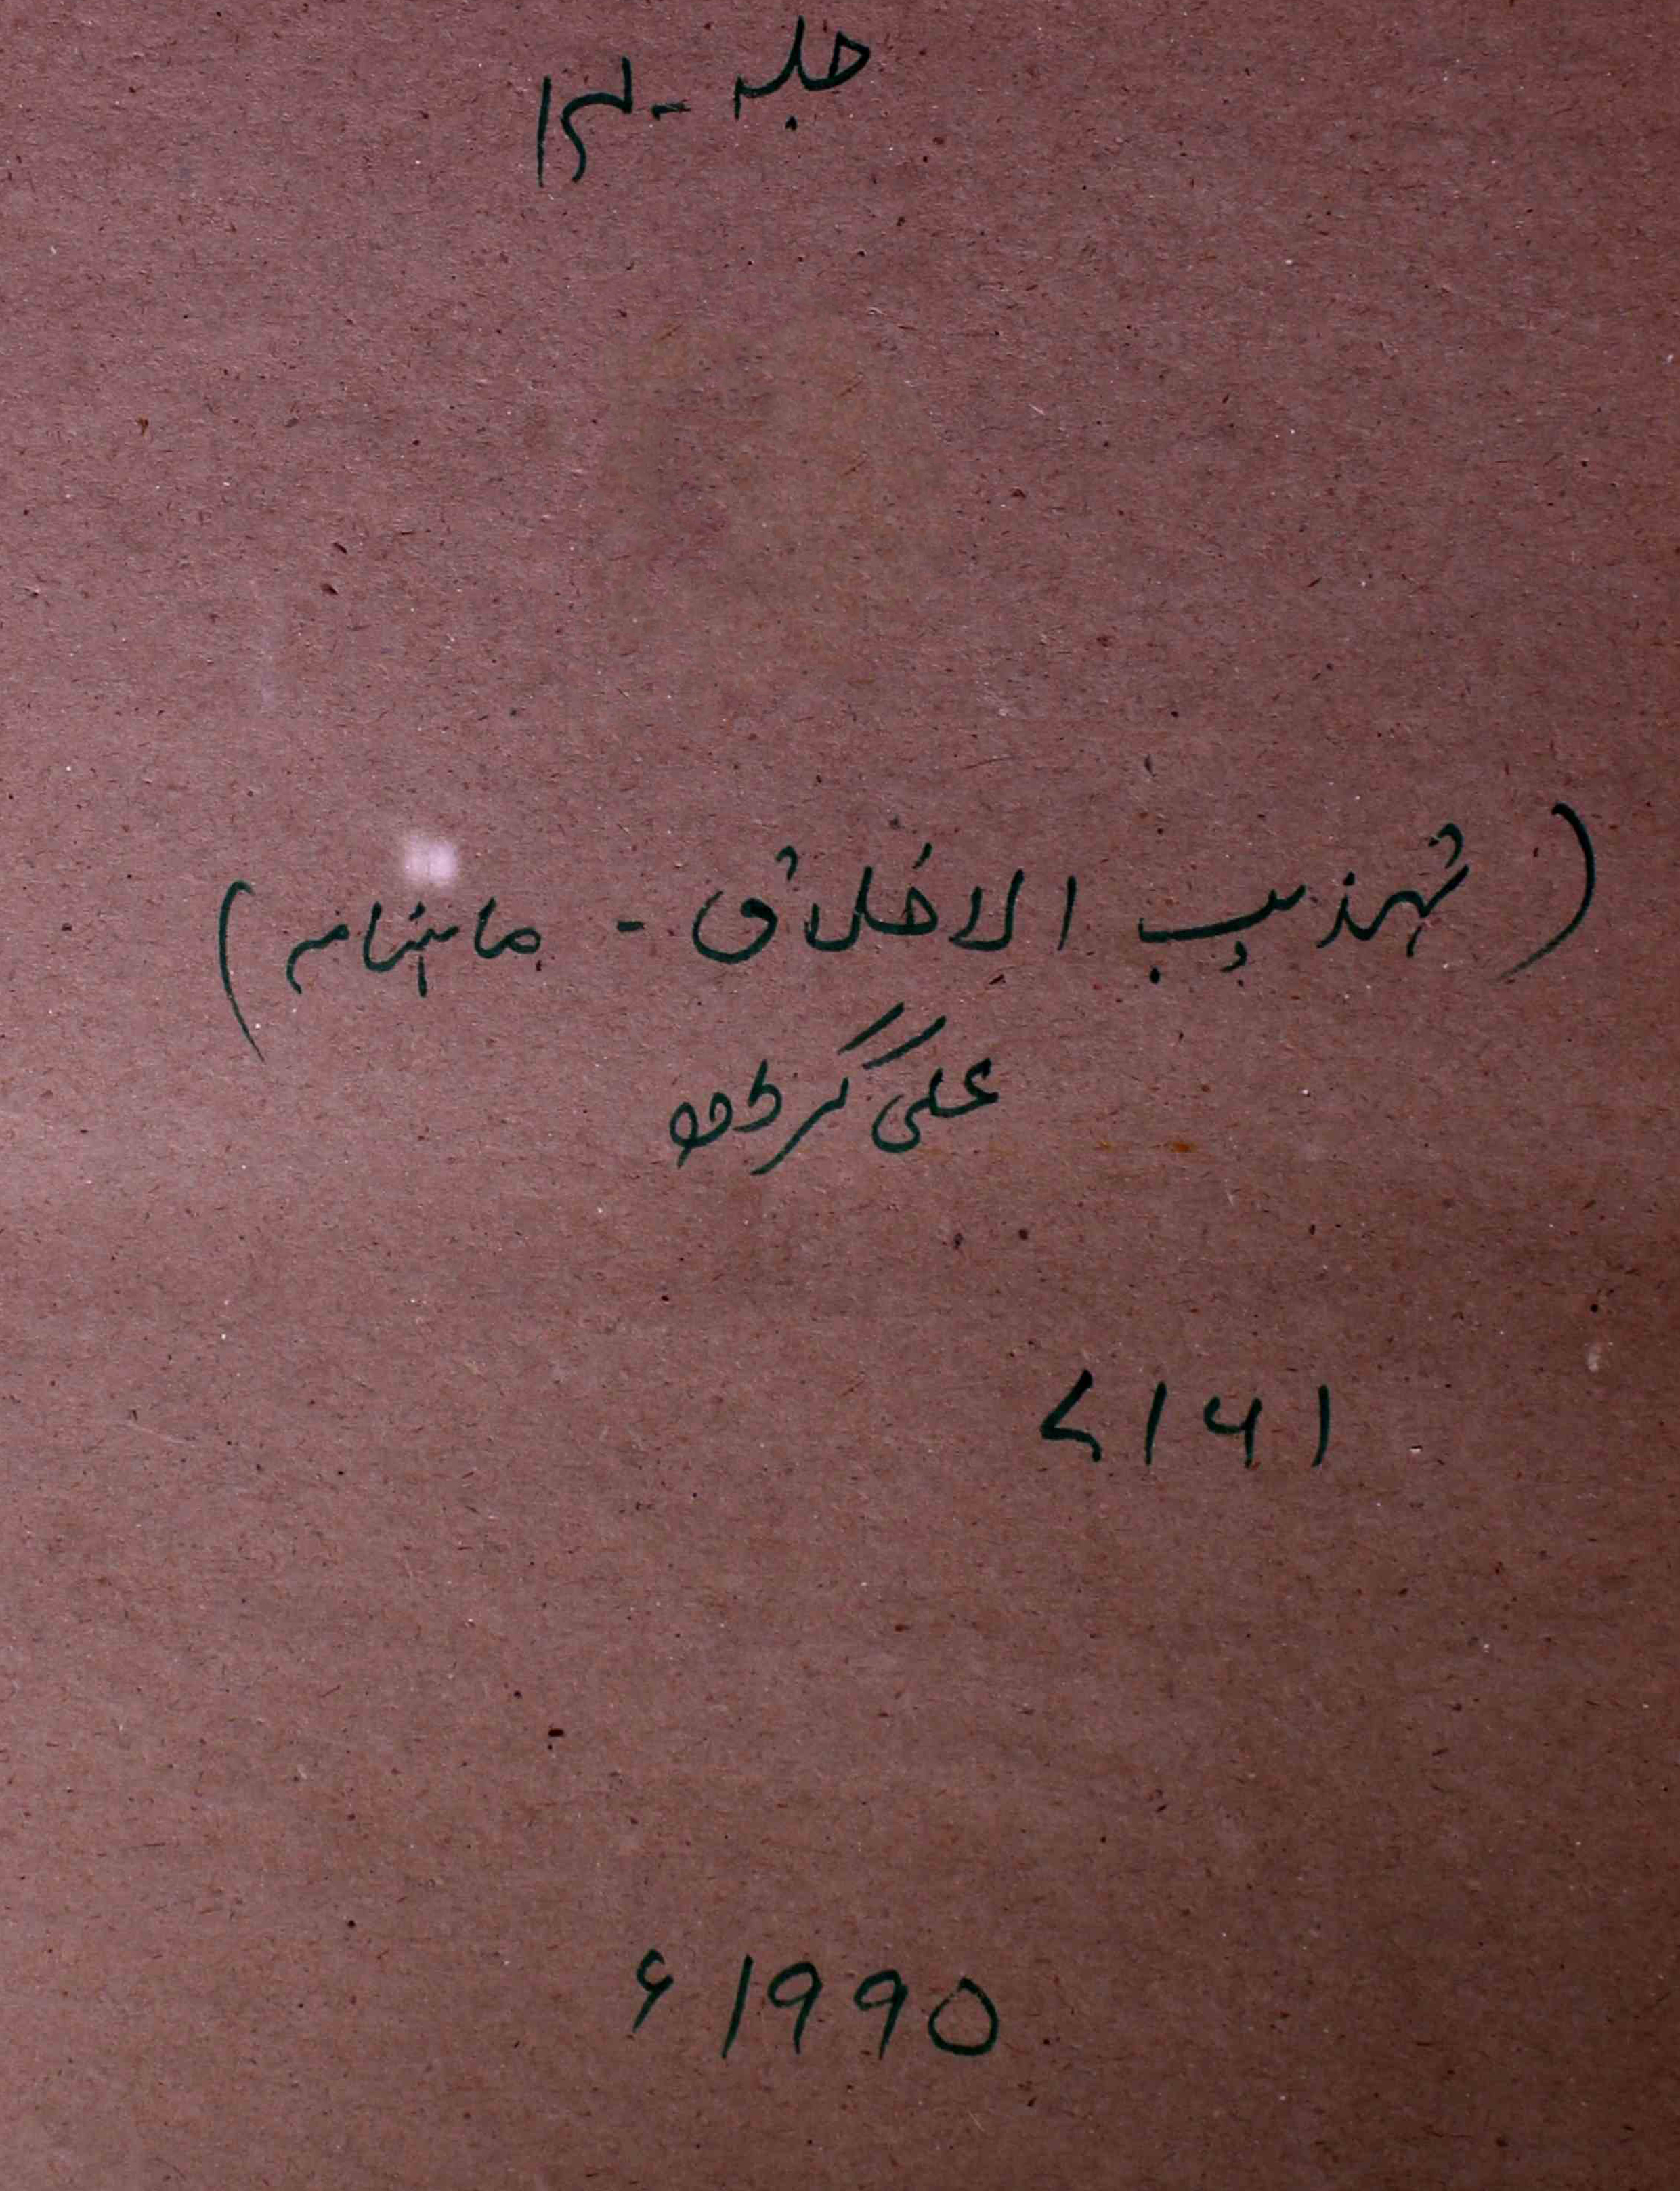 جلد - ۱۴
(تہذیب الاخلاق - ماہنامہ)
علی گڑھ
۷۱۶۱
۱۹۹۵ء